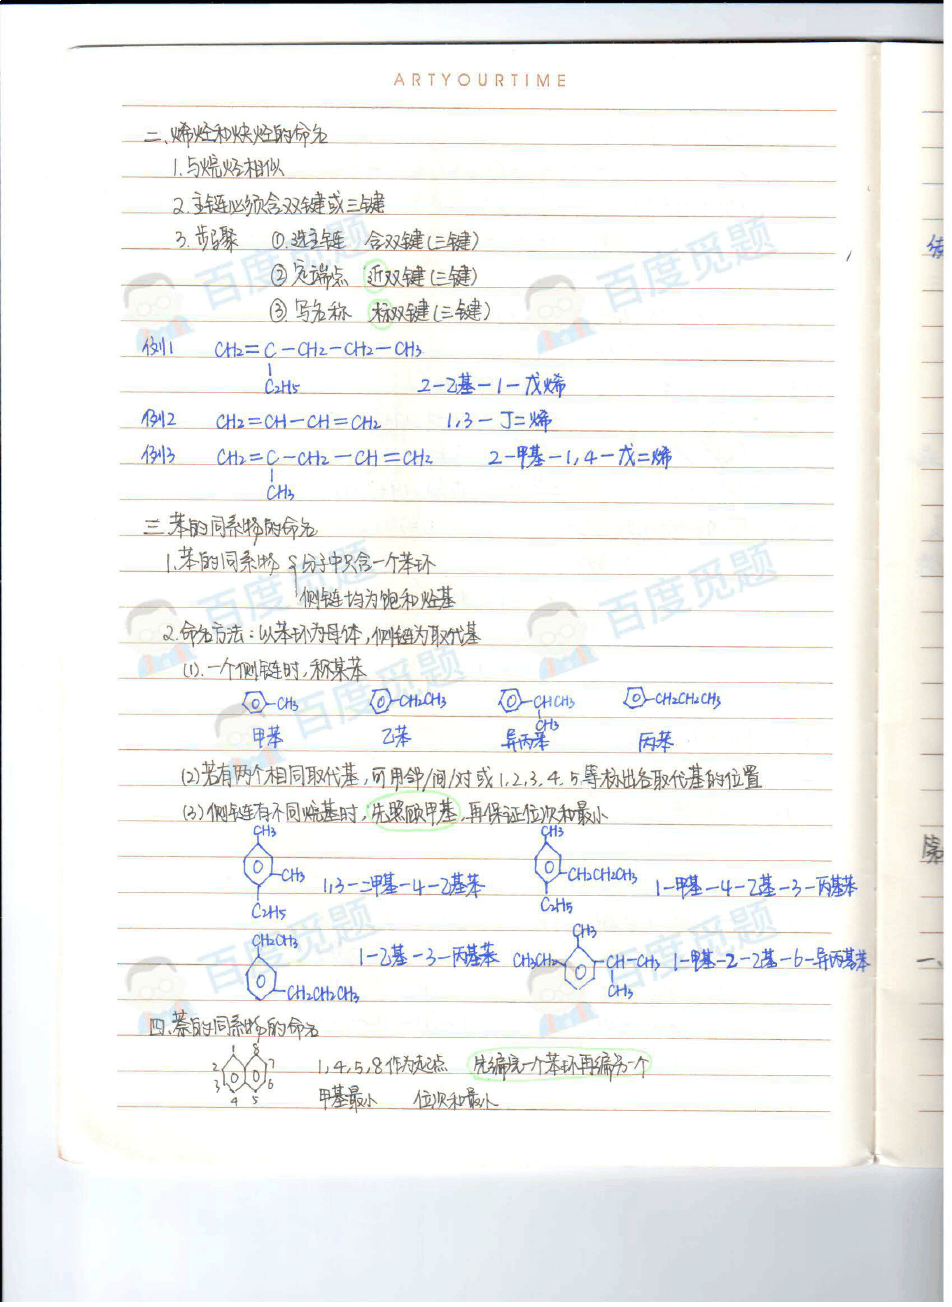 ARTYOURTIME
二、烯烃和炔烃的命名
1.与烷烃相似
2.主链必须含双键或三键
3.步骤 ①.选主链 含双键(三键)
②定端点 近双键(三键)
③.写名称 标双键(三键)
例1 CH2=C-CH2-CH2-CH3
C2H5 2-乙基-1-戊烯
例2 CH2=CH-CH=CH2 1,3-丁=烯
例3 CH2=C-CH2-CH=CH2 2-甲基-1,4-戊=烯
CH3
三.苯的同系物的命名
1.苯的同系物 { 分子中只含一个苯环
侧链均为饱和烃基
2.命名方法:以苯环为母体,侧链为取代基
(1).一个侧链时,称某苯
-CH3 -CH2CH3 -CHCH3 -CH2CH2CH3
CH3
甲苯 乙苯 异丙苯 丙苯
(2)若有两个相同取代基,可用邻/间/对或1,2,3,4,5等标出各取代基的位置
(3)侧链有不同烷基时,先照顾甲基,再保证位次和最小
CH3 CH3
-CH3 1,3-二甲基-4-乙基苯 -CH2CH2CH3 1-甲基-4-乙基-3-丙基苯
C2H5 C2H5
CH2CH3 CH3
1-乙基-3-丙基苯 CH3CH2- -CH-CH3 1-甲基-2-乙基-6-异丙基苯
-CH2CH2CH3 CH3
四.萘的同系物的命名
1 8
2 7 1,4,5,8作为起点 先编完一个苯环再编另一个
3 6
4 5 甲基最小 位次和最小
一、
百度觅题
百度觅题
百度觅题
百度觅题
百度觅题
百度觅题
百度觅题